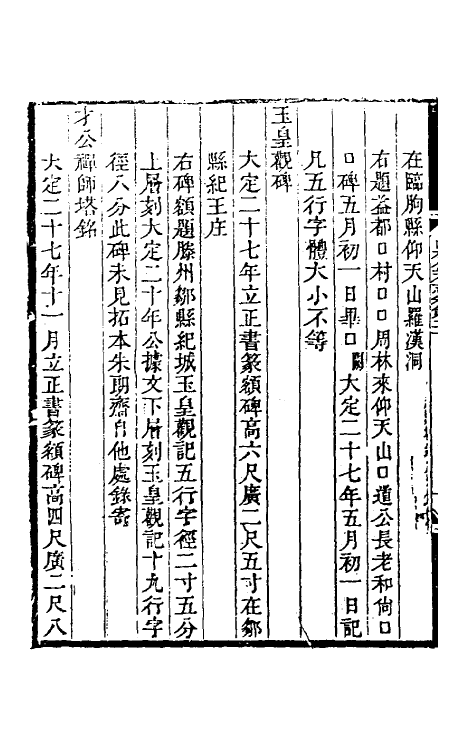 在臨朐縣仰天山羅漢洞
右題益都□村□□周林來仰天山□道公長老和尚□
□碑五月初一日畢□闕大定二十七年五月初一日記
凡五行字體大小不等
玉皇觀碑
大定二十七年立正書篆額碑高六尺廣二尺五寸在鄒
縣紀王庄
右碑額題滕州鄒縣紀城玉皇觀記五行字徑二寸五分
上層刻大定二十年公據文下層刻玉皇觀記十九行字
徑八分此碑未見拓本朱朗齋自他處錄寄
才公禪師塔銘
大定二十七年十一月立正書篆額碑高四尺廣二尺八